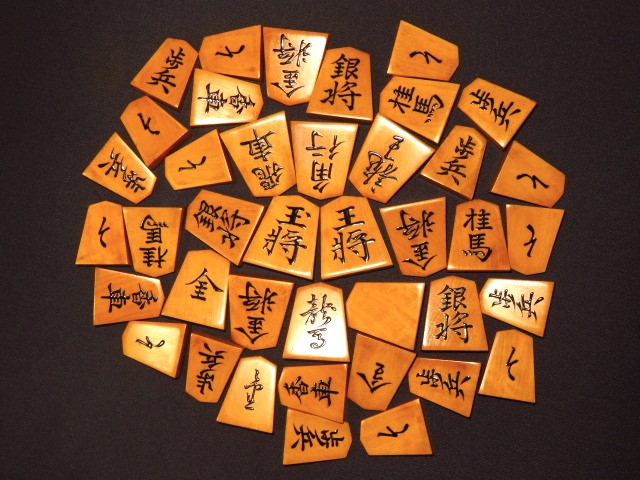 歩兵
と
金将
銀将
と
香車
桂馬
歩兵
と
歩兵
と
飛車
角行
龍王
歩兵
と
と
桂馬
銀将
王将
玉将
金将
桂馬
と
香車
全
金将
龍馬
銀将
歩兵
と
歩兵
香車
歩兵
と
歩兵
と